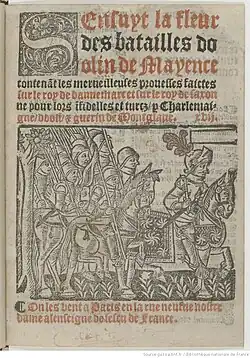 Sensuyt la fleur
des batailles do
olin de Mayence
contenāt les merveilleuses prouesses faictes
sur le roy de dannemarc et sur le roy de saxon
ne pour lors īfidelles et turtz / p Charlemai-
gne / doolī / & guerin de Montglave. xviij.
On les vent a Paris en la rue neufue nostre
dame a lenseigne de lescu de France.
Source gallica.bnf.fr / Bibliothèque nationale de France